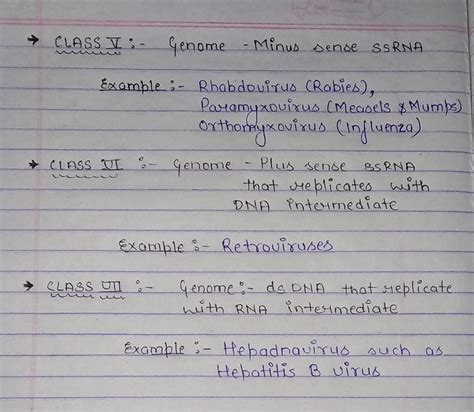 → CLASS V :- Genome - Minus sense SSRNA
Example :- Rhabdovirus (Rabies),
Paramyxovirus (Measels & Mumps)
Orthomyxovirus (Influenza)
→ CLASS VI :- Genome - Plus sense SSRNA
that replicates with
DNA intermediate
Example :- Retroviruses
→ CLASS VII :- Genome :- ds DNA that replicate
with RNA intermediate
Example :- Hepadnavirus such as
Hepatitis B virus